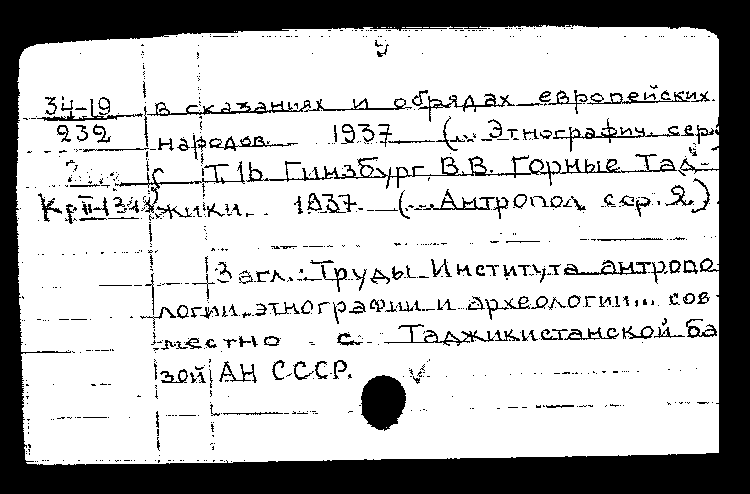 5
34-19 в сказаниях и обрядах европейских
232 народов. 1937 (... Этнографич. сер.
Т. 16. Гинзбург, В.В. Горные Тад-
Кр II-1348 жики. 1937. (...Антропол. сер. 2.)
Загл.: Труды Института антропо
логии, этнографии и археологии... сов-
местно с Таджикистанской ба
зой АН СССР.